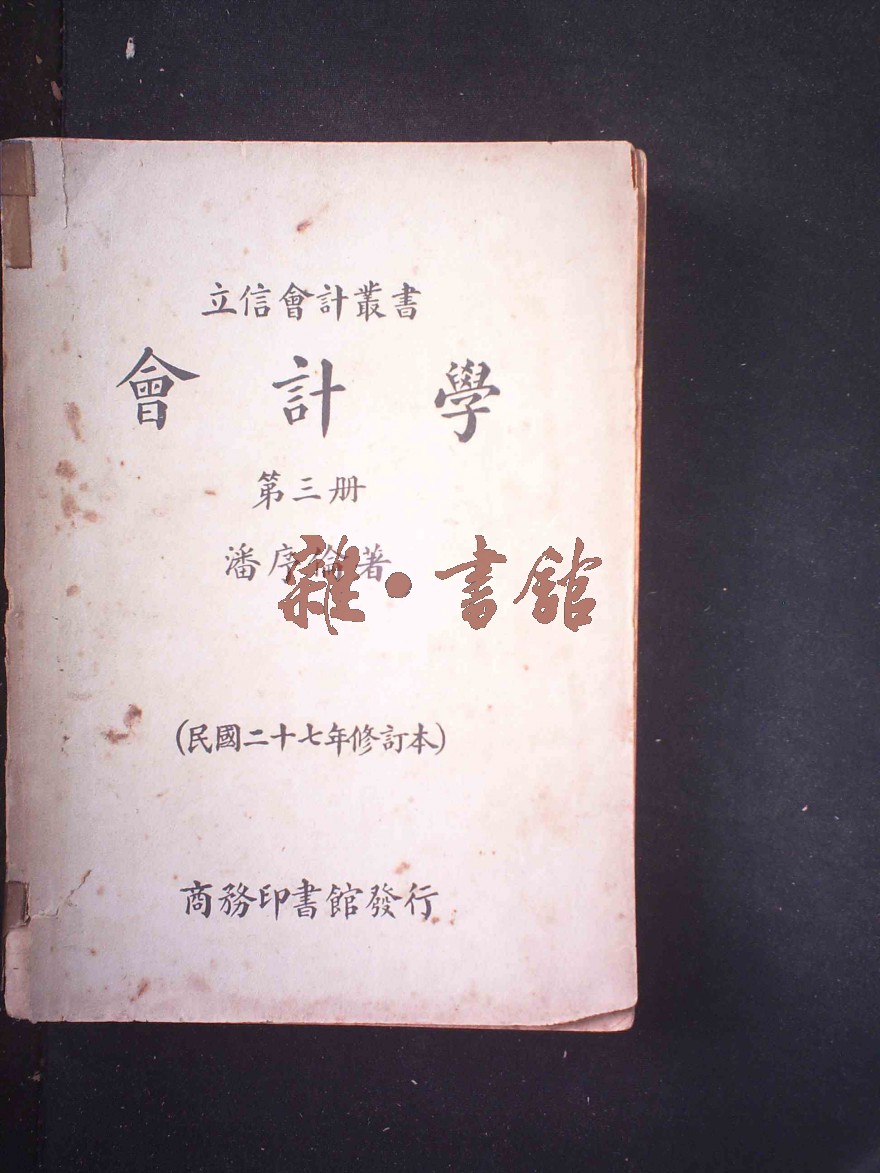 立信會計叢書
會計學
第三册
潘序倫著
雜·書館
(民國二十七年修訂本)
商務印書館發行